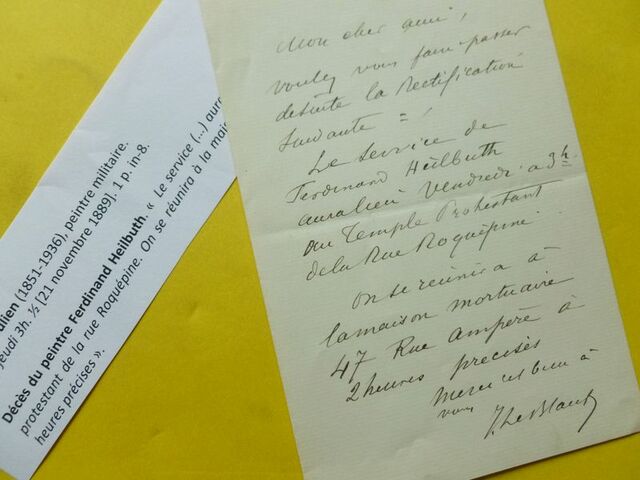 Mon cher ami,
voulez vous faire passer
desuite la Rectification
suivante = :
Le Service de
Ferdinand Heilbuth
aura lieu Vendredi a 3h
au Temple Protestant
de la Rue Roquépine.
On se réunira à
la maison mortuaire
47 Rue Ampère à
2 heures precises
merci et bien à
vous
J. Le Blant
ulien (1851-1936), peintre militaire.
jeudi 3h. ½ [21 novembre 1889]. 1 p. in-8.
Décès du peintre Ferdinand Heilbuth. « Le service (...) aura
protestant de la rue Roquépine. On se réunira à la mai
heures précises ».